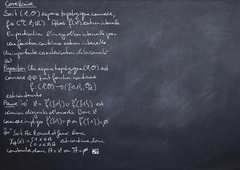 Corollaire
Soit (X, O) espace topologique connexe,
f ∈ C(X, ℝ). Alors f(X) est un intervalle
En particulier l'image d'un intervalle par
une fonction continue est un intervalle
une importante caractérisation de la connexité
est
Proposition Un espace topologique (X, O) est
connexe ssi toute fonction continue
f: (X, O) → ({0,1},
est constante
Preuve "⇒" X = f⁻¹({0}) ∪ f⁻¹({1}) est
réunion disjointe d'ouverts. Donc X
connexe implique f⁻¹({0}) = ∅ ou f⁻¹({1}) = ∅.
"⇐" Soit A ouvert et fermé. Donc
χ_A(x) = { 1 x ∈ A
0 x ∉ A est continue donc
constante donc A = X ou A = ∅